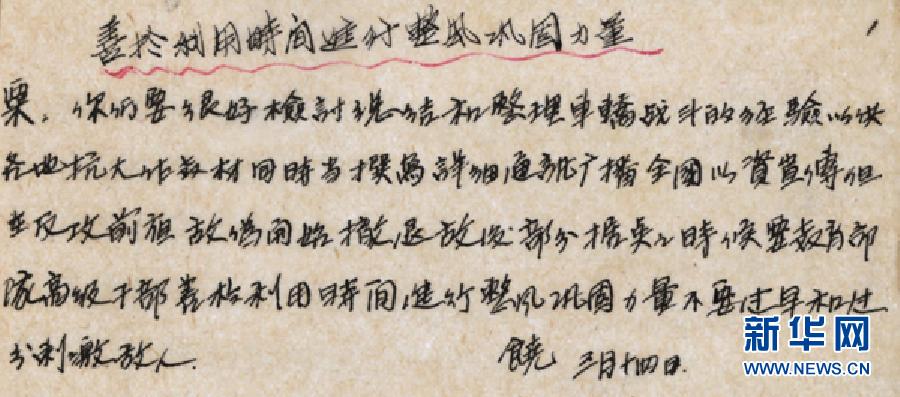 善於利用時間進行整風巩固力量
粟，你們要很好檢討總結和整理車橋战斗的经驗以供
各地抗大作教材同時当撰為詳細通訊广播全國以資宣傳但
在反攻前夜敌偽開始撤退敌後部分据点之時候要教育部
隊高级干部善於利用時間進行整风巩固力量不要过早和过
分刺激敌人.
饒 三月十四日.
新华网
WWW.NEWS.CN